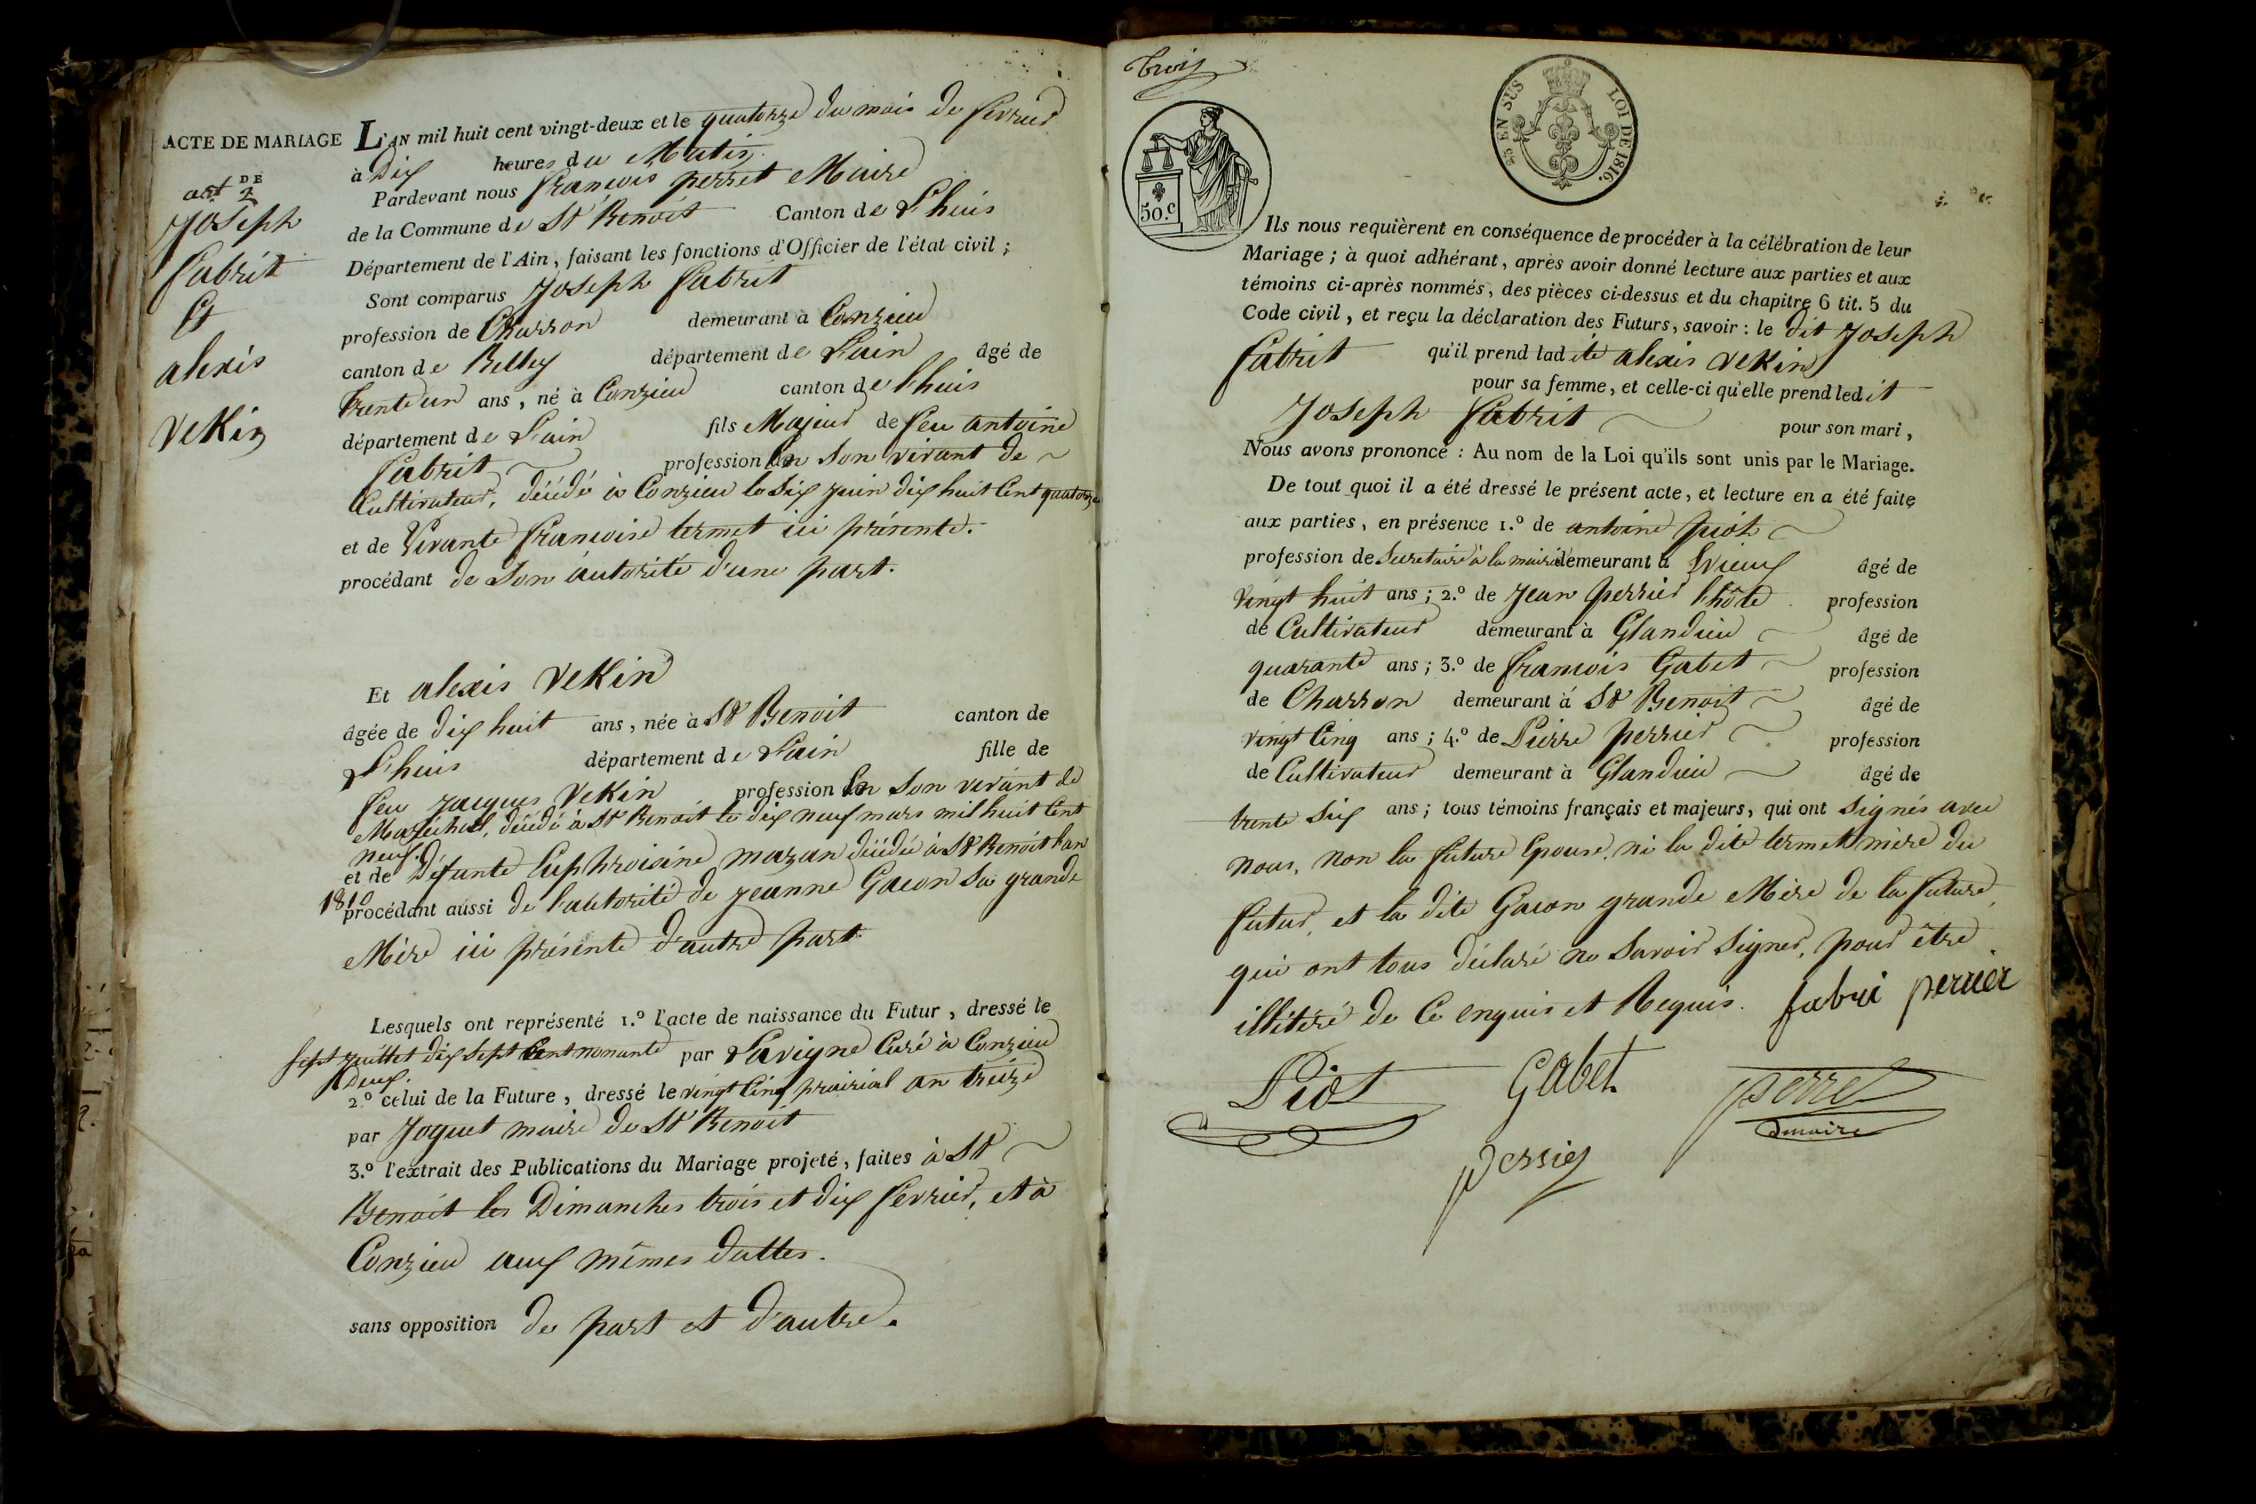 ACTE DE MARIAGE
DE
art 2
Joseph
Fabrit
Et
alexis
VeKin
L'AN mil huit cent vingt-deux et le quatorze du mois de fevrier
à Dix heures du Matin.
Pardevant nous françois perret Maire
de la Commune de St Benoit Canton de L'huis
Département de l'Ain, faisant les fonctions d'Officier de l'état civil ;
Sont comparus Joseph Fabrit
profession de Charron demeurant à Conzieu
canton de Belley département de L'ain âgé de
trente un ans, né à Conzieu canton de L'huis
département de L'ain fils Majeur de feu antoine
Fabrit profession en son vivant de
Cultivateur, décédé à Conzieu le six juin dix huit cent quatorze
et de Vivante françoise termet ici présente.
procédant de son autorité d'une part.
Et alexis VeKin
âgée de dix huit ans, née à St Benoit canton de
L'huis département de L'ain fille de
feu jacques VeKin profession en son vivant de
Maréchal, décédé à St Benoit le dix neuf mars mil huit cent
neuf.
et de Défunte Euphroisine mazan décédée à St Benoit l'an
1810
procédant aussi de l'autorité de jeanne Gacon sa grande
Mère ici présente d'autre part.
Lesquels ont représenté 1.º l'acte de naissance du Futur, dressé le
sept juillet dix sept cent nonante par Lavigne Curé à Conzieu
Deux.
2.º celui de la Future, dressé le vingt cinq prairial an treize
par Joguet maire de St Benoit
3.º l'extrait des Publications du Mariage projeté, faites à St
Benoit les Dimanches trois et dix fevrier, et à
Conzieu aux mêmes dattes.
sans opposition de part et d'autre.
trois
50.c
EN SUS LOI DE 1816.
Ils nous requièrent en conséquence de procéder à la célébration de leur
Mariage ; à quoi adhérant, après avoir donné lecture aux parties et aux
témoins ci-après nommés, des pièces ci-dessus et du chapitre 6 tit. 5 du
Code civil, et reçu la déclaration des Futurs, savoir : le dit Joseph
Fabrit qu'il prend ladite alexis VeKin
pour sa femme, et celle-ci qu'elle prend ledit
Joseph Fabrit pour son mari,
Nous avons prononcé : Au nom de la Loi qu'ils sont unis par le Mariage.
De tout quoi il a été dressé le présent acte, et lecture en a été faite
aux parties, en présence 1.º de antoine piot
profession de Secretaire à la mairie demeurant à Evieux âgé de
vingt huit ans ; 2.º de jean perrier l'hôte profession
de Cultivateur demeurant à Glandieu âgé de
quarante ans ; 3.º de francois Gabet profession
de Charron demeurant à St Benoit âgé de
vingt Cinq ans ; 4.º de Pierre perrier profession
de Cultivateur demeurant à Glandieu âgé de
trente six ans ; tous témoins français et majeurs, qui ont signés avec
nous, non la future Epouse, ni la dite termet mère du
futur, et la dite Gacon grande Mère de la future,
qui ont tous déclaré ne savoir signer, pour être
illétéré de ce enquis et Requis. fabri perrier
Piot Gabet perret
maire
perrier